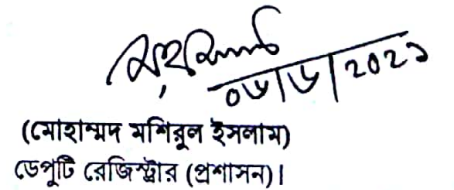 ০৬/৬/২০২১
(মোহাম্মদ মশিরুল ইসলাম)
ডেপুটি রেজিস্ট্রার (প্রশাসন)।